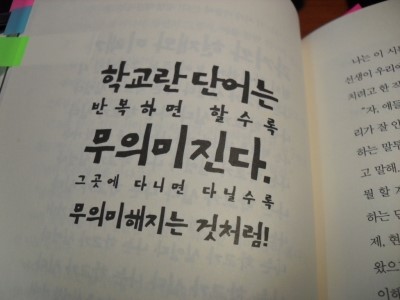 학교란 단어는
반복하면 할수록
무의미진다.
그곳에 다니면 다닐수록
무의미해지는 것처럼!
나는 이 사
선생이 우리에
치려고 한 것
"자, 애들
리가 잘 안
하는 말투
고 말해.
뭘 할 지
하는 단
제, 현
왔으므
이해